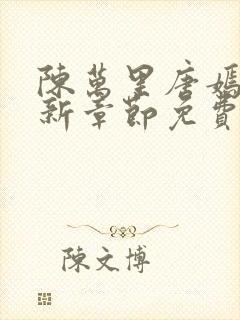 陳萬里唐嫣
新章節免費
陳文博